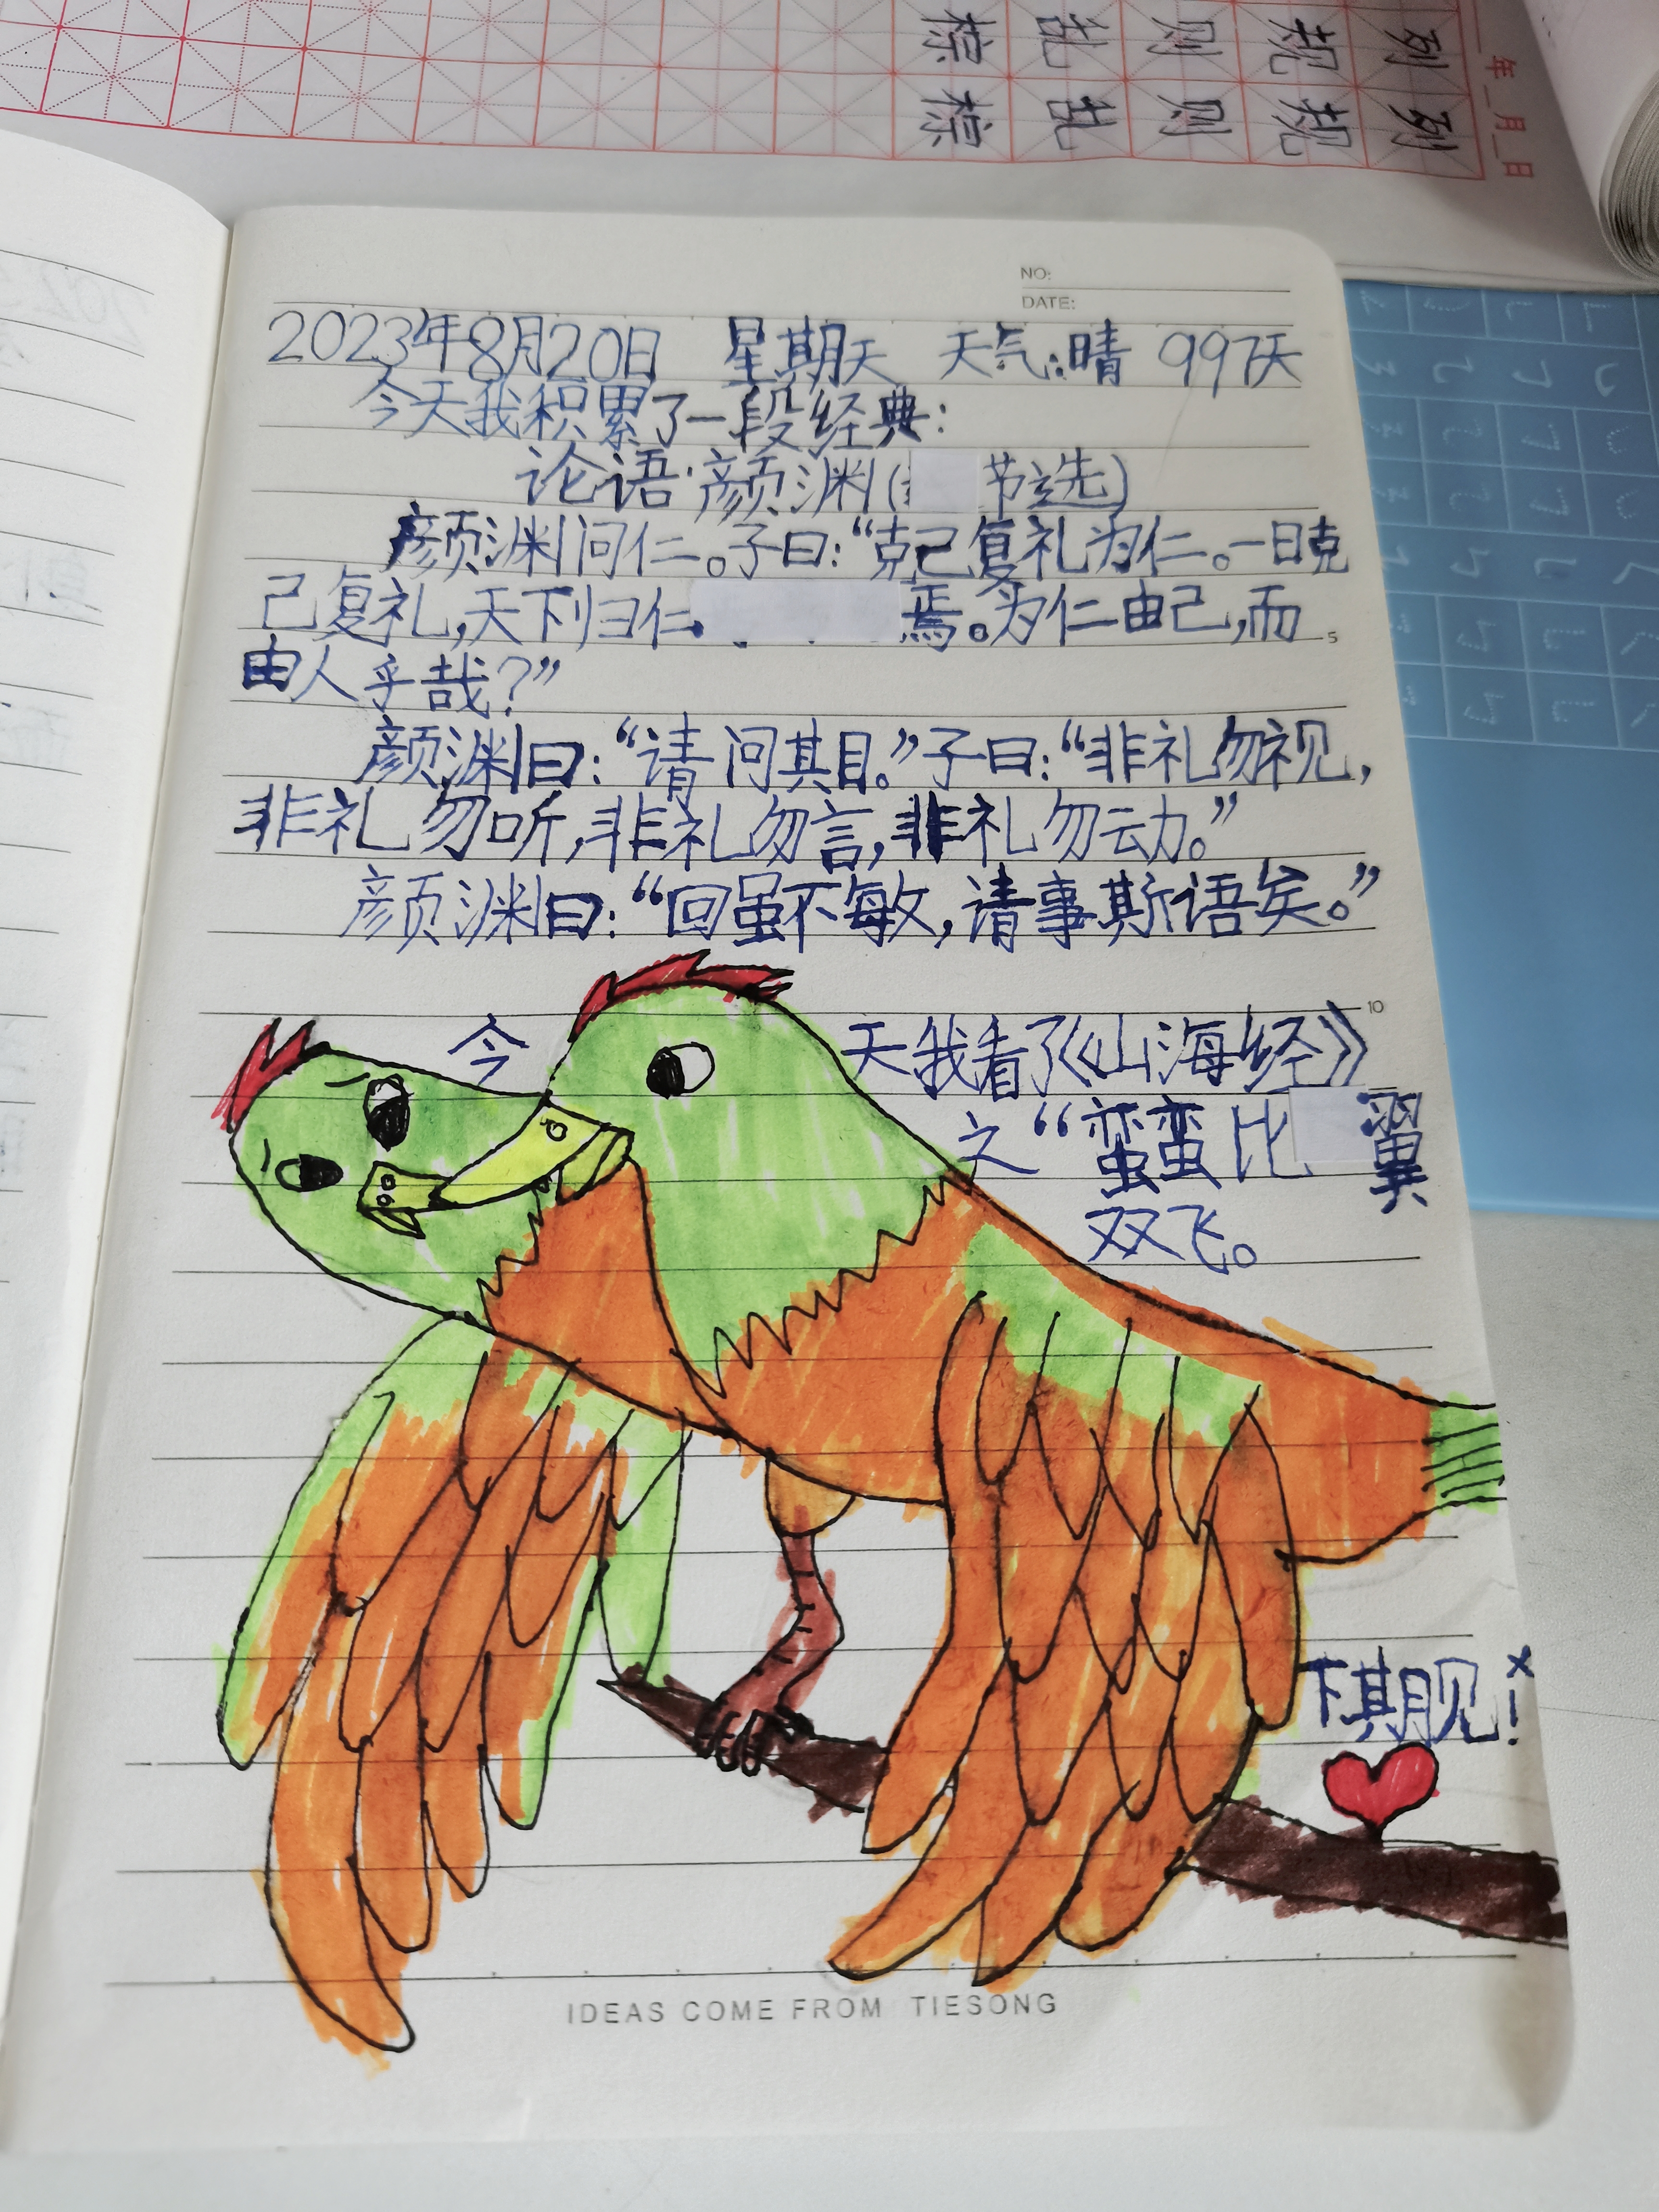 棕 乱 则 规 列
棕 乱 则 规 列
年 月 日
NO:
DATE:
2023年8月20日 星期天 天气:晴 997天
今天我积累了一段经典:
论语·颜渊(节选)
颜渊问仁。子曰:“克己复礼为仁。一日克
己复礼,天下归仁焉。为仁由己,而
5
由人乎哉?”
颜渊曰:“请问其目。”子曰:“非礼勿视,
非礼勿听,非礼勿言,非礼勿动。”
颜渊曰:“回虽不敏,请事斯语矣。”
10
今天我看了《山海经》
之“蛮蛮比翼
双飞。
下期见!
IDEAS COME FROM TIESONG